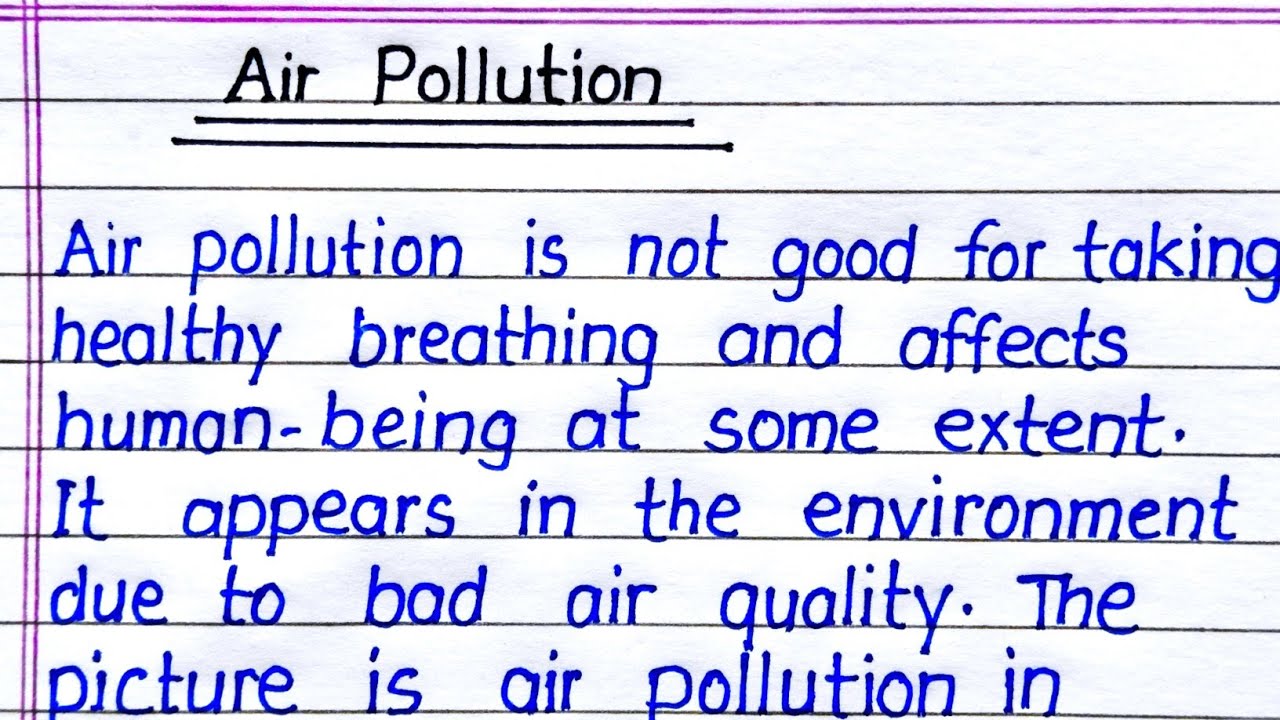 Air Pollution
Air pollution is not good for taking
healthy breathing and affects
human-being at some extent.
It appears in the environment
due to bad air quality. The
picture is air pollution in